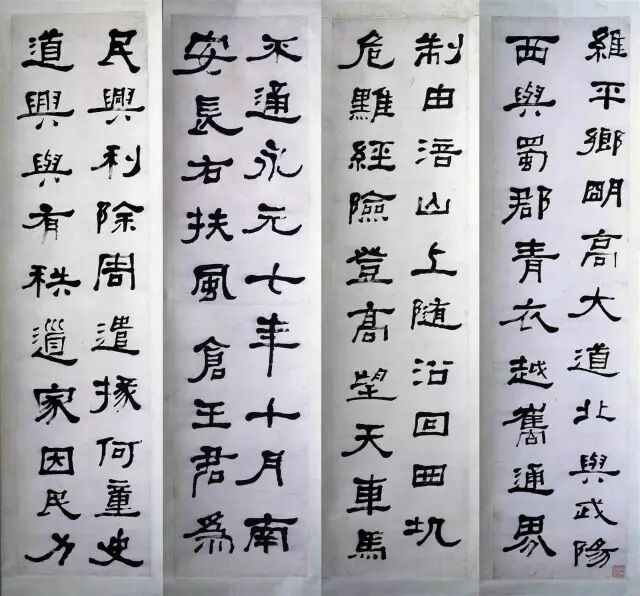 維平鄉明高大道北與武陽
西與蜀郡青衣越嶲通界
制由涪山上随沿回田
危難經險登高望天車馬
不通永元七年十月南
安長右扶風倉王君為
民興利除周遣掾何童史
道興與有秩家因民力